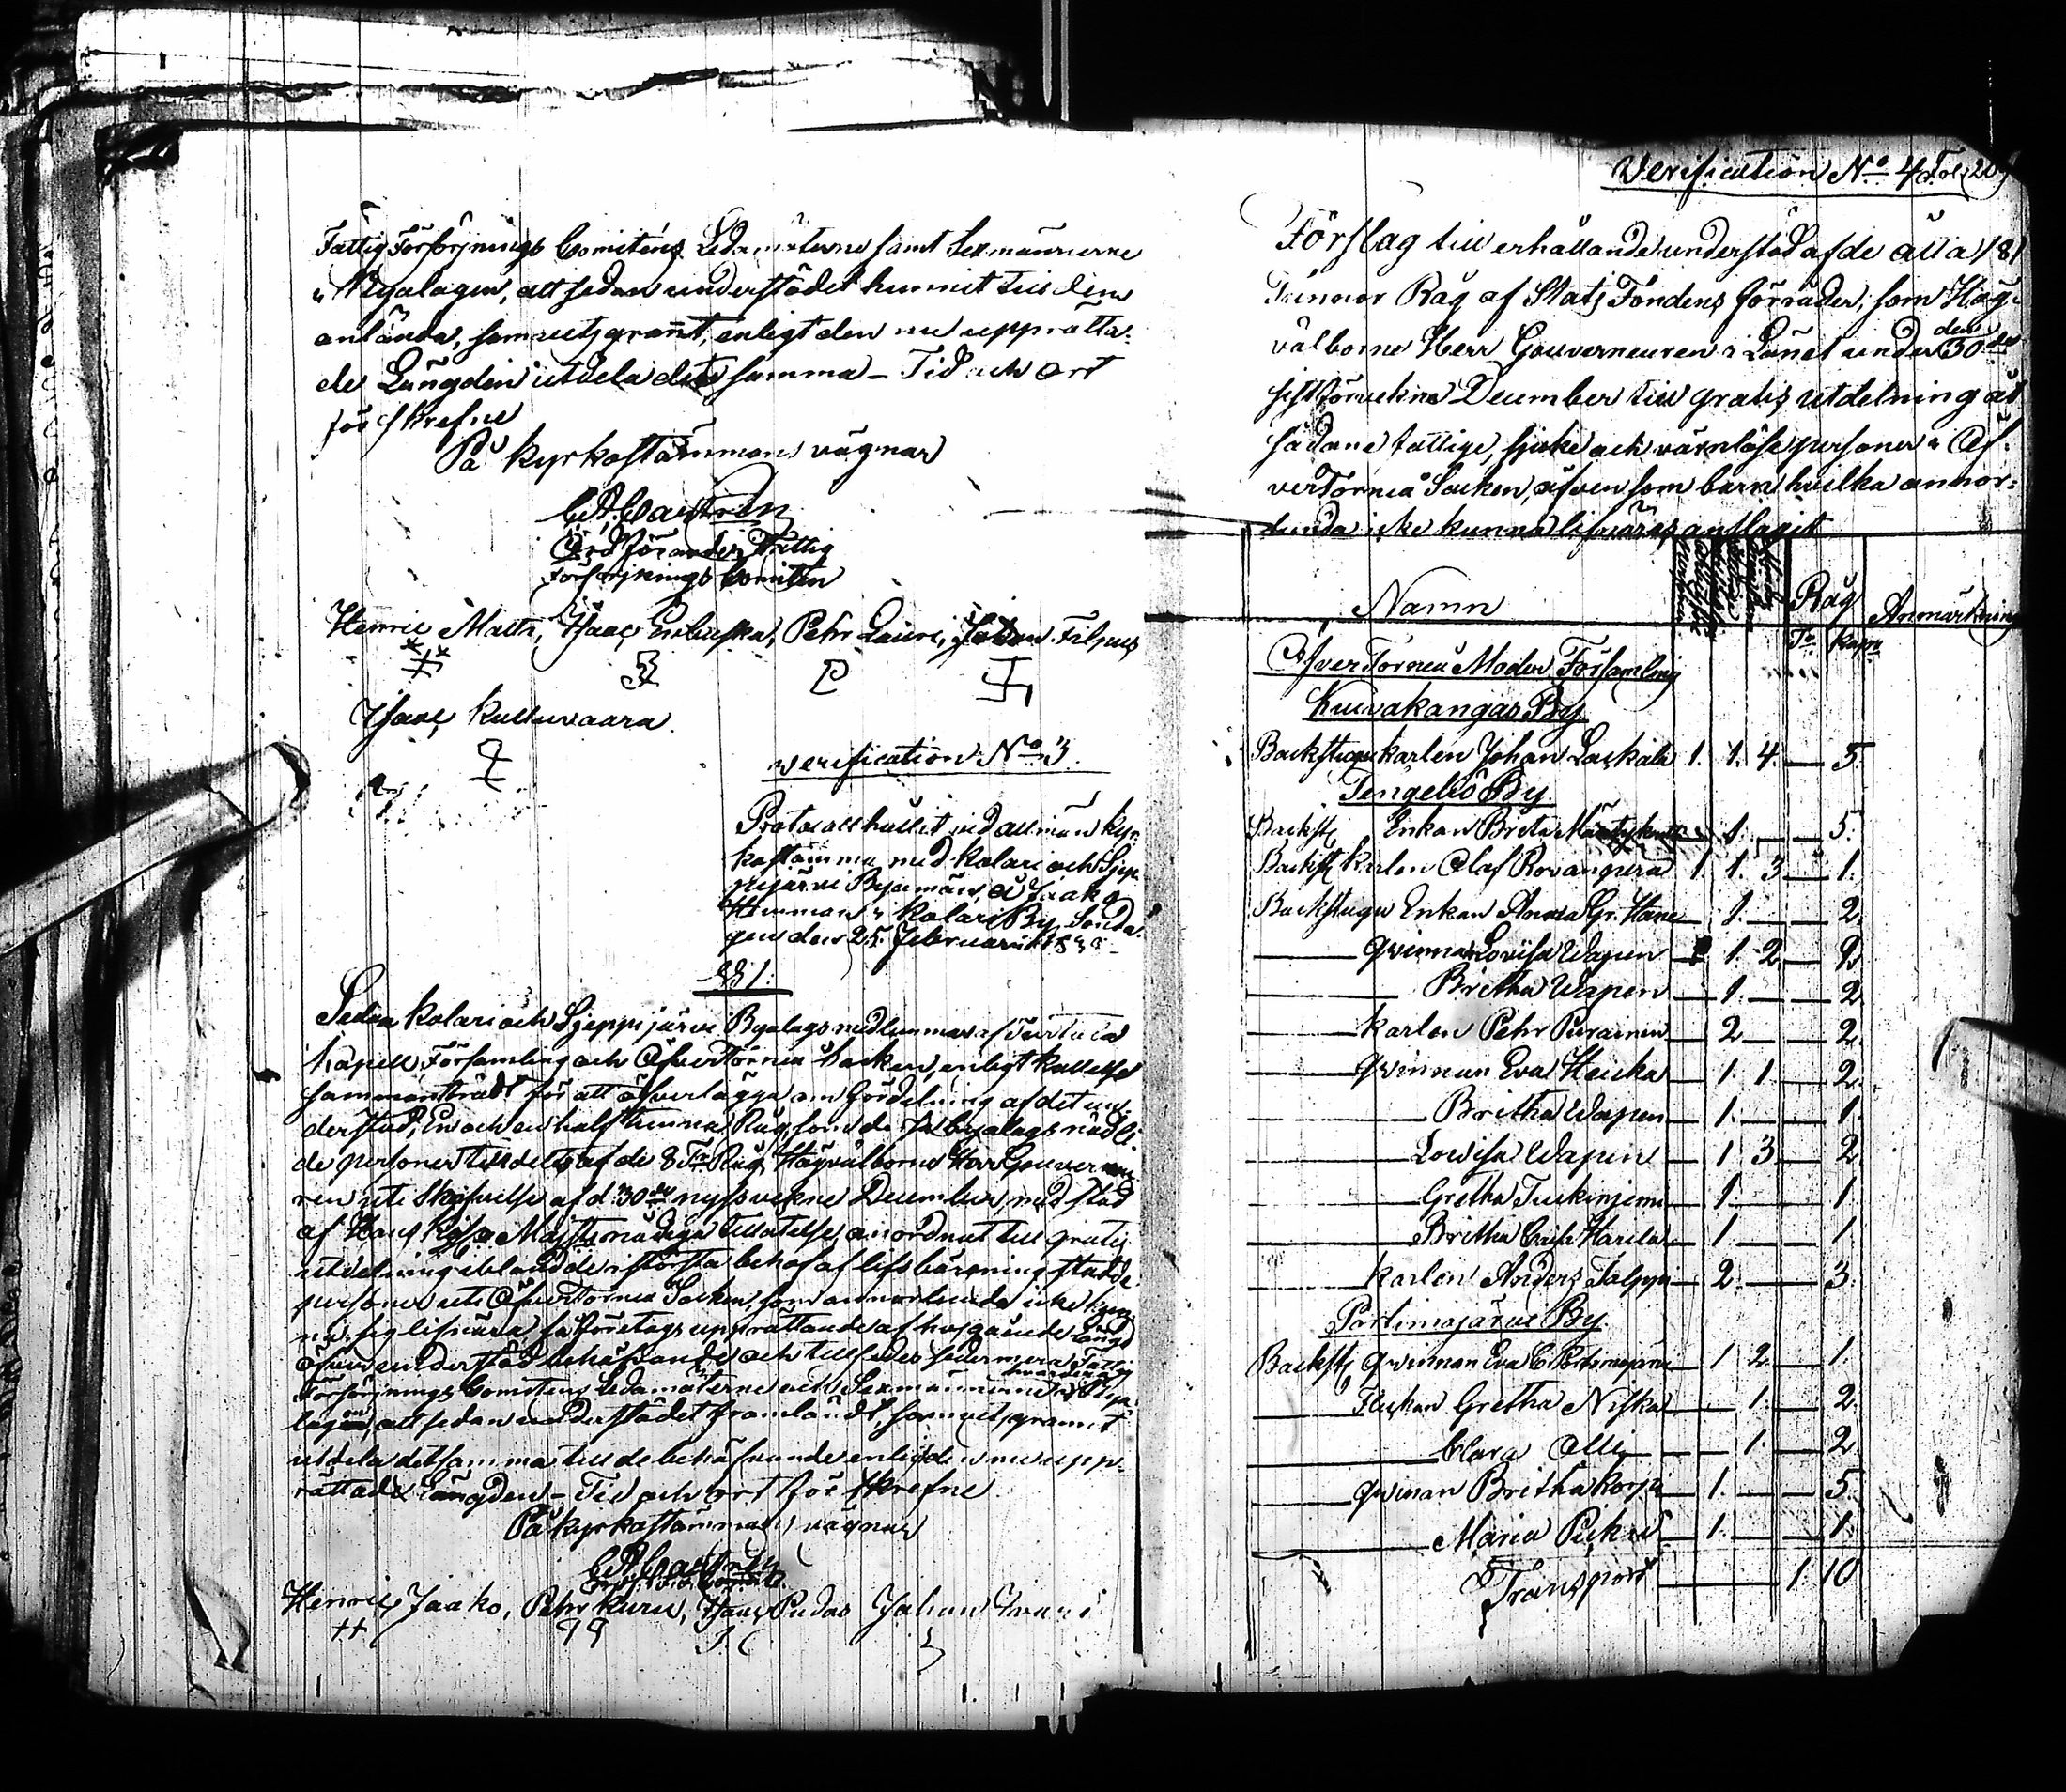 Fattig Försörjnings Comiténs Ledamöterne samt Sexmännerne
i Byalagen, att sedan understödet hunnit till dem
anlända, samvetsgrannt, enligt den nu upprätta-
de Längden utdela det samma – Tid och ort
förskrefne
På kyrkostämmans vägnar
C. A. Castrén
Ordförande i Fattig
Försörjnings Comitén
Henric Matti, Isaac Pehr Lauri, Johan Filpus
Isaac Kulluvaara
Verification N:o 3.
Protocoll hållit vid allmän kyr-
kostämma med Kolari och Sjep-
pijärvi Byamän, å Jaako
Hemman i Kolari By, Sönda-
gen den 25 Februarii
§ 1.
Sedan Kolari och Sjeppijärvi Byalags medlemmar af
Kapell Församling och Öfvertorneå Socken, enligt kallelse
sammanträdt för att öfverlägga om fördelning af det un-
derstöd, En och en half tunna Råg, som dessa byalags nödli-
de personer tilldelts af de 8 T:r Råg, Högvälborne Herr Gouverneu-
ren uti Skrifvelse af d. 30:de nyssvekne December, med stöd
af Hans Kejs:a Maj:ts nådiga tillåtelse, anordnat till gratis
utdelning ibland de i största behof af lifsbärgning stadde
personer uti Öfvertorneå Socken, som annorlunda icke kun-
na sig lifnära, så företogs upprättande af Längd
öfver understöd behöfvande och Fattig
Försörjnings Comitens Ledamöterne och Sexmännerne i Bya-
lagen, att sedan understödet framländt, samvetsgrannt
utdela detsamma till de behöfvande enligt den nu upp-
rättade Längden – Tid och ort förskrefne
På kyrkostämmans vägnar
C. A. Castrén
Henric Jaako, Pehr Kuru, Isaac Pudas Johan
Verification N:o 4. Fol. 209
Förslag till erhållande understöd af de åtta /8/
Tunnor Råg af Stats Fondens förråder, som Hög-
välborne Herr Gouverneuren i Länet under den 30:de
sistförvekne December till gratis utdelning åt
sådane fattige, sjuke och värnlöse personer i Öf-
verTorneå Socken, äfvensom barn hvilka annor-
lunda icke kunna lifnäras, anslagit
Namn Råg Anmärkning
T:r Kapp:r
Öfver Torneå Moder Församling
Kuivakangas By
Backstugu karlen Johan Laskala 1. 1. 4. — 5.
Tengeliö By.
Backst: Enkan Brita 1. — 5.
Backst: Karlen Olof Rovanperä 1. 1. 3 — 1.
Backstugu Enkan Anna Gr. Hane 1. — 2
— Qvinnan Lovisa Wapen 1. 2. — 2
— Britha Wapen — 1. — 2
— Karlen Pehr Purainen 2 — 2.
— Qvinnan Eva Heicka — 1. 1 — 2
— Britha Wapen — 1. — 1.
— Lowisa Wapen — 1 3 — 2
— Gretha — 1. — 1
— Britha Caisa Harila — 1 — 1.
— Karlen Anders Talppi — 2. — 3.
Portimojärvi By
Backst: Qvinnan Eva C. Portimojärvi — 1 2 — 1.
— Flickan Gretha Niska — 1. — 2.
— Clara Olli — 1. — 2
— Qvinnan Britha Korpi — 1. — 5.
— Maria — 1. — 1.
Transport — 1. 10